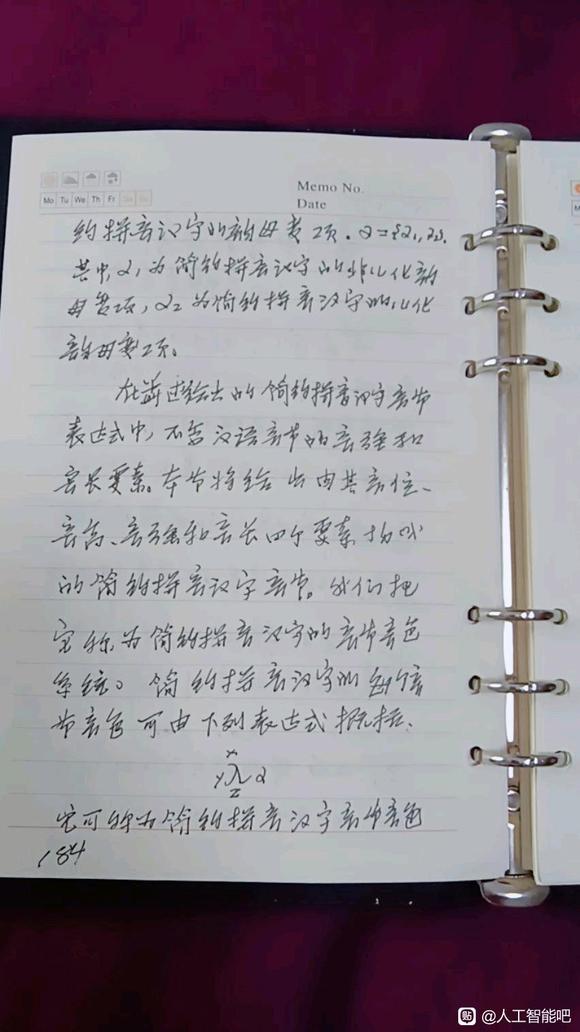 Memo No.
Mo Tu We Th Fr Sa Su
Date
约拼音汉字的韵母变项。α={α₁,α₂}.
其中α₁为简约拼音汉字的非儿化韵
母变项,α₂为简约拼音汉字的儿化
韵母变项。
在前述给出的简约拼音汉字音节
表达式中,不含汉语音节的音强和
音长要素。本节将给出由其音位、
音高、音强和音长四个要素构成
的简约拼音汉字音节。我们把
它称为简约拼音汉字的音节音色
系统。简约拼音汉字的每个音
节音色可由下列表达式概括:
x
yλα
z
它可称为简约拼音汉字音节音色
184
贴 @人工智能吧